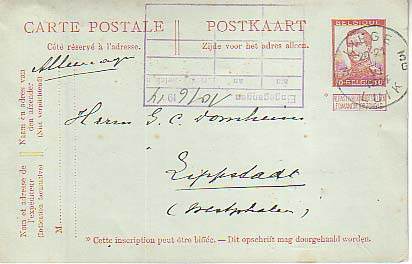 CARTE POSTALE
POSTKAART
Côté réservé à l'adresse.
Zijde voor het adres alleen.
BELGIQUE
Allemagne
Naam en adres van
den afzender
(Niet verplichtend)
Nom et adresse de
l'expéditeur
(Indication facultative)
Eingegangen
10/6 14
Herrn G. C. Dornheim
M
Lippstadt
(Westphalen)
* Cette inscription peut être biffée. — Dit opschrift mag doorgehaald worden.